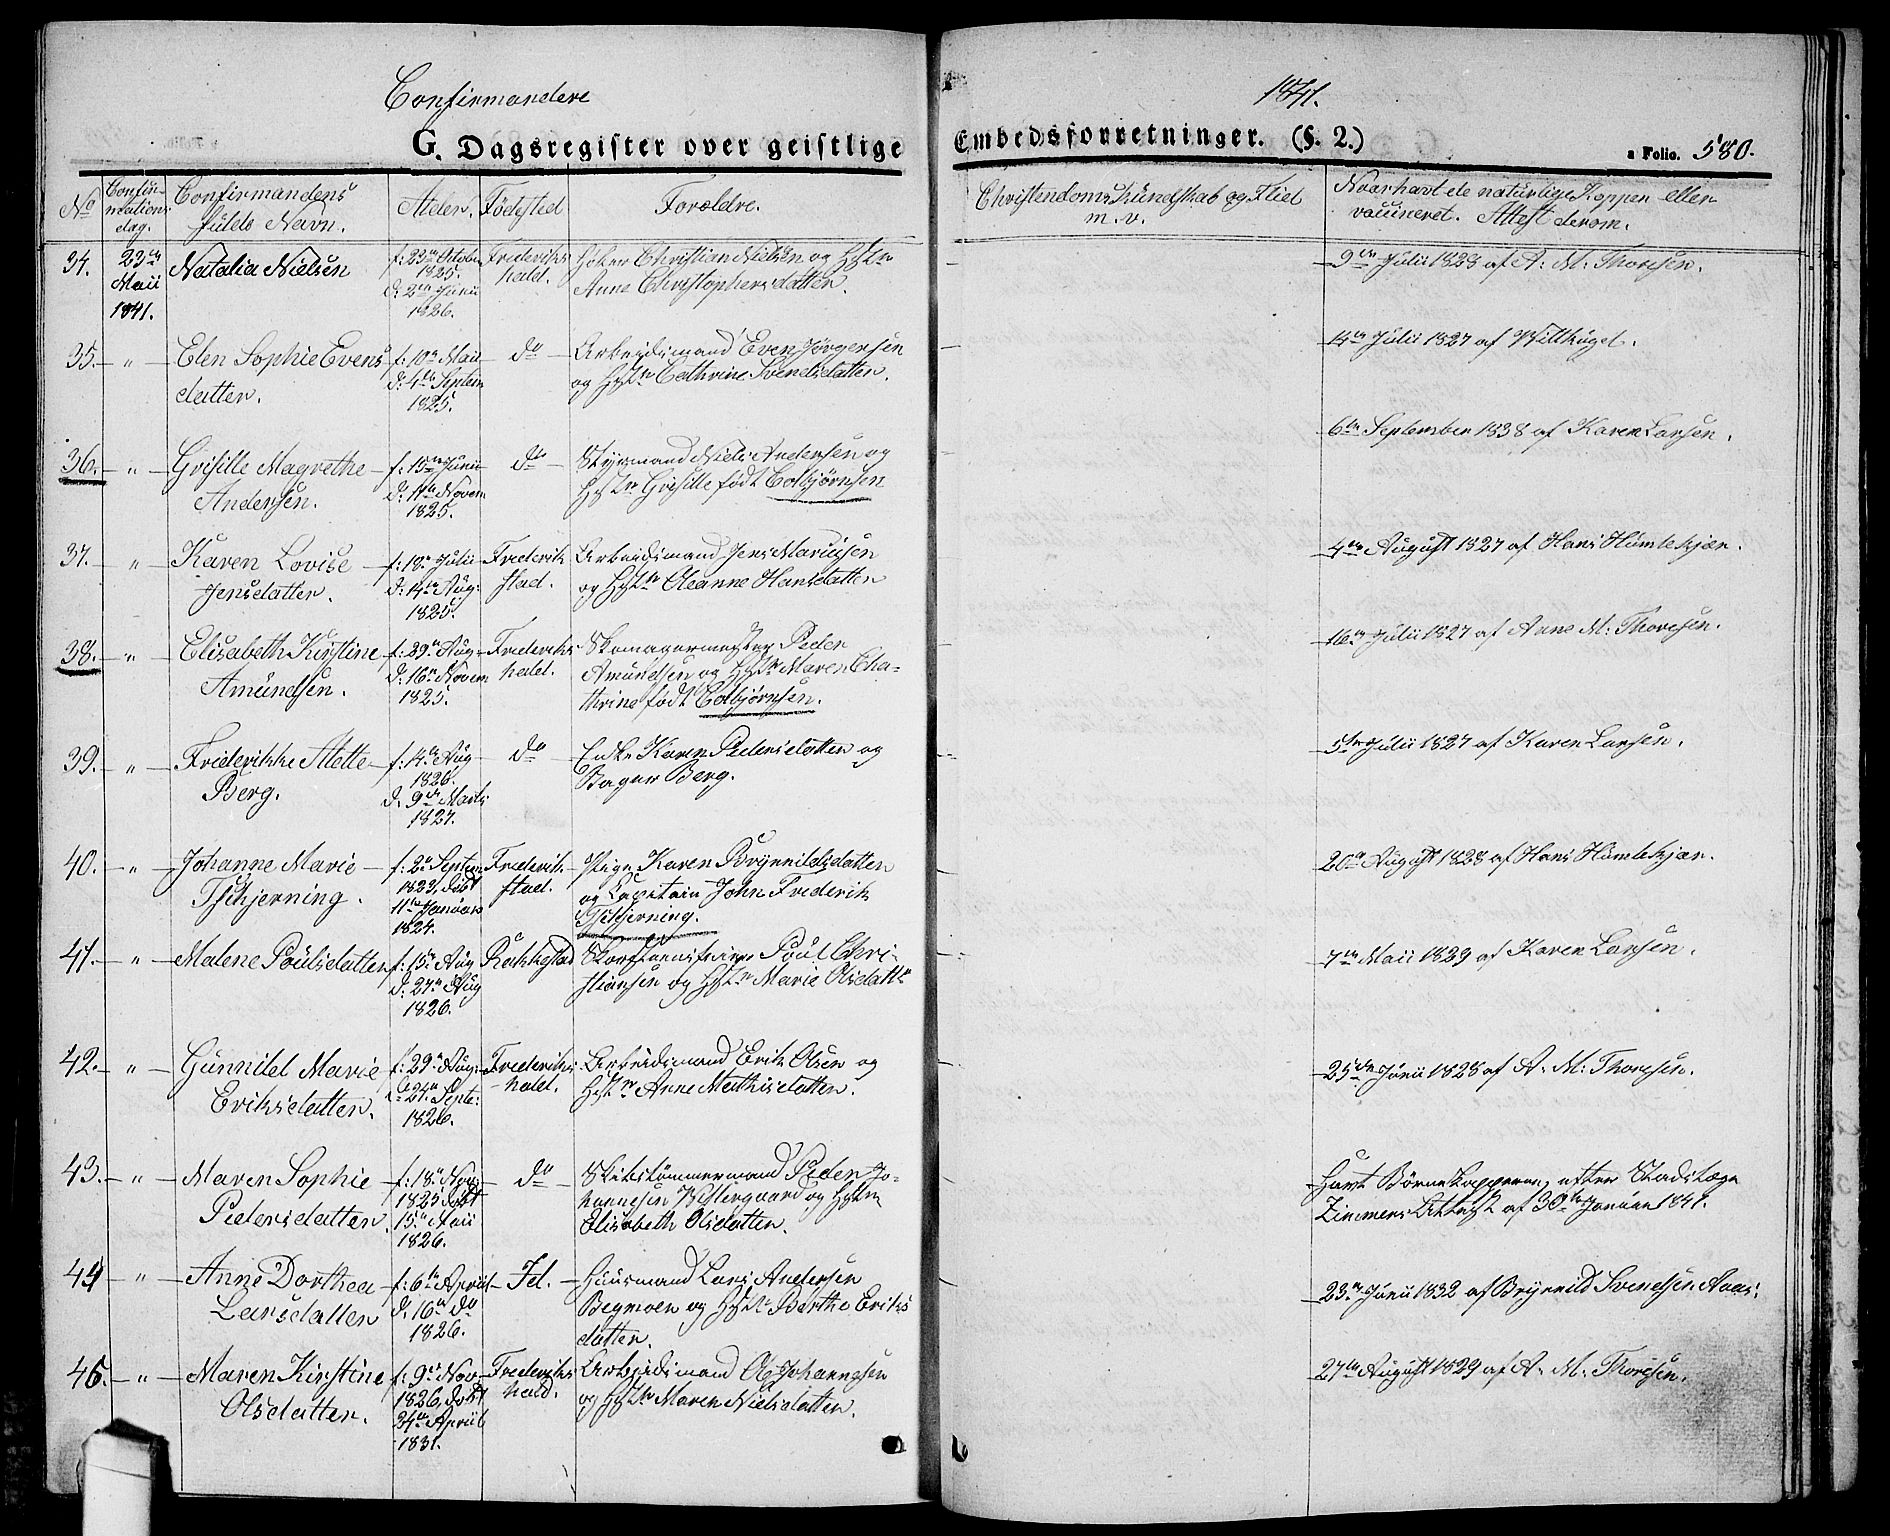 Confirmandere
1841.
G. Dagsregister over geistlige Embedsforretninger. (§. 2.)
a Folio. 580.
No
Confir-
mations
dag.
Confirmandens
fulde Navn.
Alder.
Fødested
Forældre.
Christendoms Kundskab og Fliid
m. v.
Naar havt de naturlige Kopper eller
vaccineret. Attest derom.
34.
23de
Maii
1841.
Natalia Nielsen
f: 23de Octobr
1825.
d: 2den Junii
1826.
Frederiks
hald.
Høker Christian Nielsen og Hst.
Anne Christophersdatter.
9de Julii 1828 af A. M. Thoresen.
35. " Elen Sophie Evens
datter.
f: 10de Maii
d: 4de Septem
1825.
do
Arbeidsmand Even Jørgensen
og Hst. Cathrine Svendsdatter.
14de Julii 1827 af Willhuget.
36. " Grisille Magrethe
Andersen.
f: 15de Junii
d: 11te Novem
1825.
do
Styrmand Niels Andersen og
Hst. Grisille født Colbjørnsen
6te September 1838 af Karen Larsen.
37. " Karen Lovise
Jensdatter.
f: 18de Julii
d: 14de Aug:
1825.
Frederik
stad.
Arbeidsmand Jens Mariusen
og Hst. Oleanne Hansdatter
4de August 1827 af Hans Humlekjær.
38. " Elisabeth Kirstine
Amundsen.
f: 29de Aug
d: 16de Novem
1825.
Frederiks
hald.
Skomagermester Peder
Amundsen og Hst. Maren Cha-
thrine født Colbjørnsen.
16de Julii 1827 af Anne M: Thoresen.
39. " Friderikke Alette
Berg.
f: 14de Aug
1826.
d: 9de Marts
1827.
do
Enke Karen Pedersdatter og
Bager Berg.
5te Julii 1827 af Karen Larsen.
40. " Johanne Marie
Tschjerning.
f: 2den Septem
1822, døbt
11te Januar
1824.
Frederik
stad.
Pige Karen Brynnildsdatter
og Capitain John Frederik
Tschjerning.
20de August 1828 af Hans Humlekjær.
41. " Malene Poulsdatter
f: 15de Aug
d: 27de Aug
1826.
Rakkestad
Skorsteensfeier Poul Chri-
stiansen og Hst. Marie Olsdatter
7de Maii 1829 af Karen Larsen.
42. " Gunnild Marie
Eriksdatter.
f: 29de Aug:
d: 27. Septb:
1826.
Frederiks
hald.
Arbeidsmand Erik Olsen og
Hst. Anne Mathisdatter.
25de Junii 1828 af A. M: Thoresen.
43. " Maren Sophie
Pedersdatter.
f: 18de Nov
1825 døbt
15de Maii
1826.
do
Skibstømmermand Peder Jo-
hannesen Westergaard og Hst.
Elisabeth Olsdatter.
Havt Børnekopperne, efter Stadslæge
Zimmers Attest af 30te Januar 1841.
44 " Anne Dorthea
Larsdatter
f: 6te April
d: 16de do
1826.
Id.
Huusmand Lars Andersen
Begmoen og Hst. Berthe Eriks
datter.
23de Junii 1832 af Brynnild Svendsen Aaas:
45. " Maren Kirstine
Olsdatter.
f: 9de Nov
1826, døbt
24de April
1831.
Frederiks
hald.
Arbeidsmand Ole Johannesen
og Hst. Maren Nielsdatter.
27de August 1829 af A. M: Thoresen.